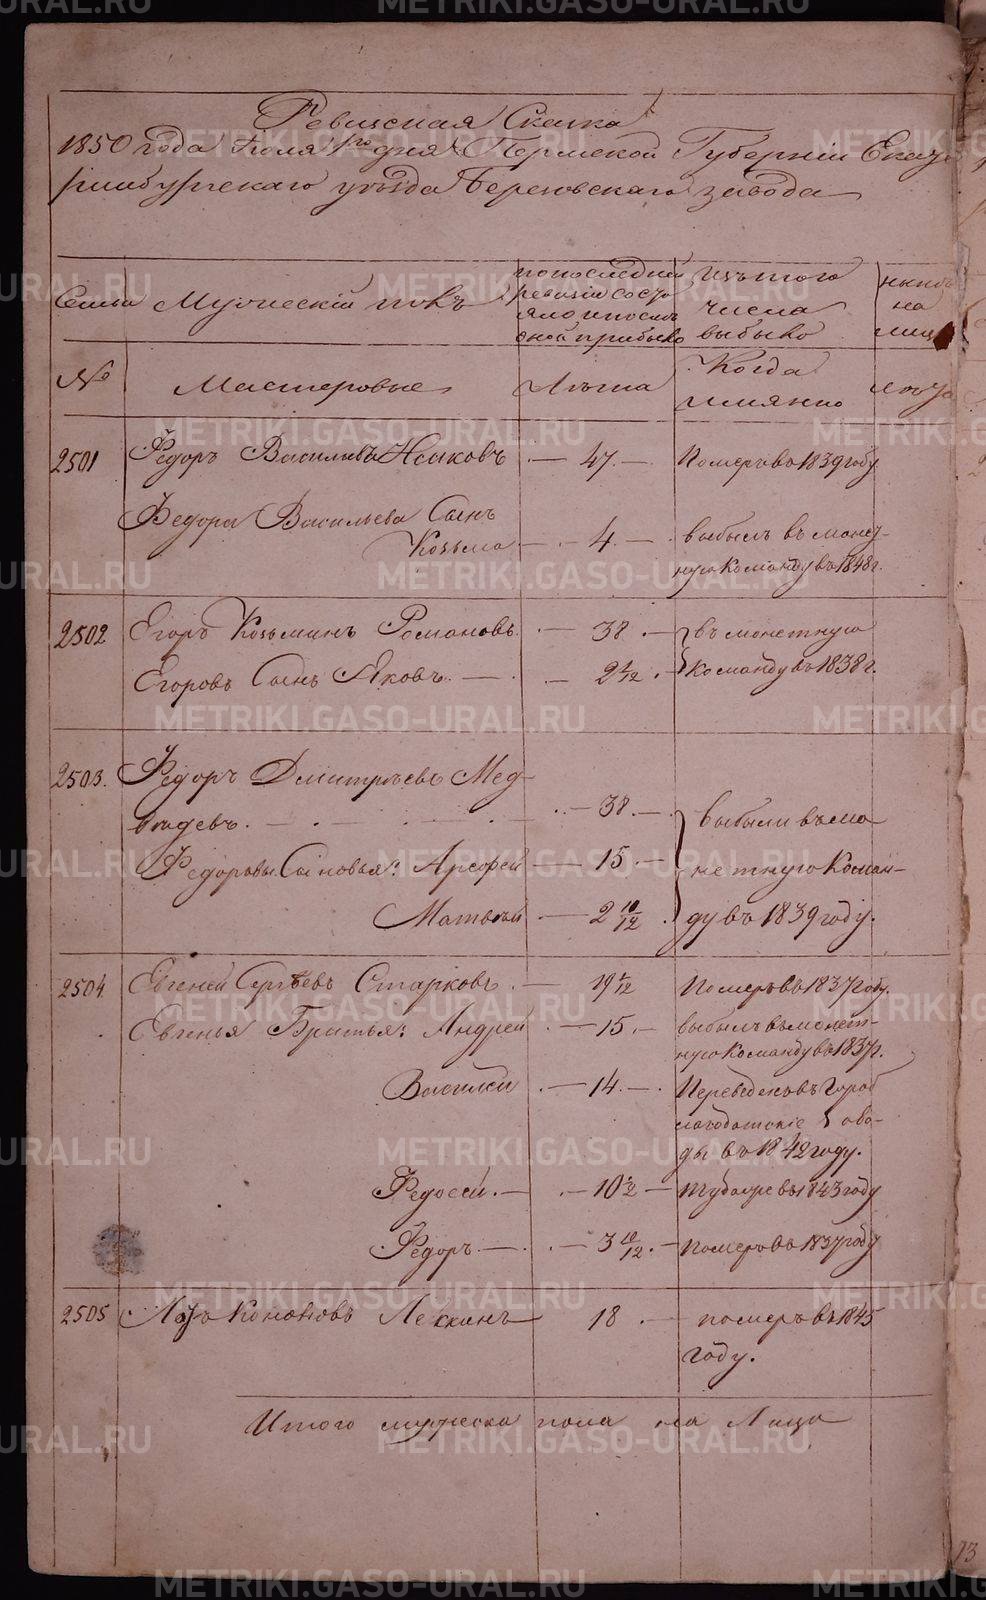 Ревизская Сказка
1850 года Июля 1го дня Пермской Губернии Екате
ринбургскаго уѣзда Березовскаго завода
Семьи
Мужескій полъ
по последней
ревизіи состо
яло и послѣ
оной прибыло
Изъ того
числа
выбыло
нынѣ
на
лицо
№
Мастеровые
Лѣта
Когда
имянно
лѣта
2501
Ѳедоръ Васильевъ
— 47. —
Померъ въ 1839 году
Ѳедора Васильева Сынъ
Козьма — 4. —
выбылъ въ монет-
ную Команду въ 1848 г.
2502
Егоръ Козьминъ Романовъ. — 38. —
въ монетную
Егоровъ Сынъ Яковъ. — 2 1/2.
Команду въ 1838 г.
2503.
Ѳедоръ Дмитріевъ Мед-
вѣдевъ. — 38. —
выбыли въ мо
Ѳедоровы Сыновья: Арефей — 15. —
нетную Коман-
Матвѣй — 2 10/12.
ду въ 1839 году.
2504
Евгеней Сергѣевъ Старковъ. — 19 1/2
Померъ въ 1837 году.
Евгенья Братья: Андрей — 15. —
выбылъ въ монет-
ную Команду въ 1837 г.
Василей — 14. —
Переведенъ въ Гороб
лагодатскіе заво-
ды въ 1842 году.
Федосей. — 10 1/2 —
въ 1843 году
Ѳедоръ. — 3 10/12. —
померъ въ 1837 году
2505
Кононовъ
18. —
померъ въ 1845
году.
Итого мужеска пола на Лицо
METRIKI.GASO-URAL.RU